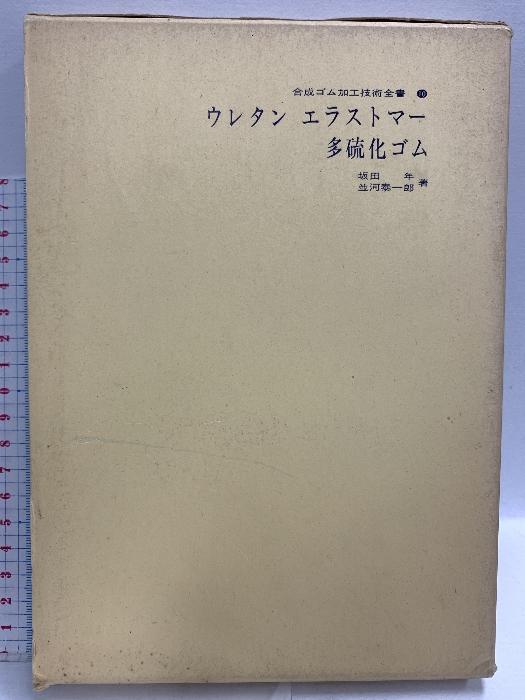 合成ゴム加工技術全書 ⑩
ウレタン エラストマー
多硫化ゴム
坂田 年
並河泰一郎 著
7
6
5
4
3
2
1
0
9
8
7
6
5
4
3
2
1